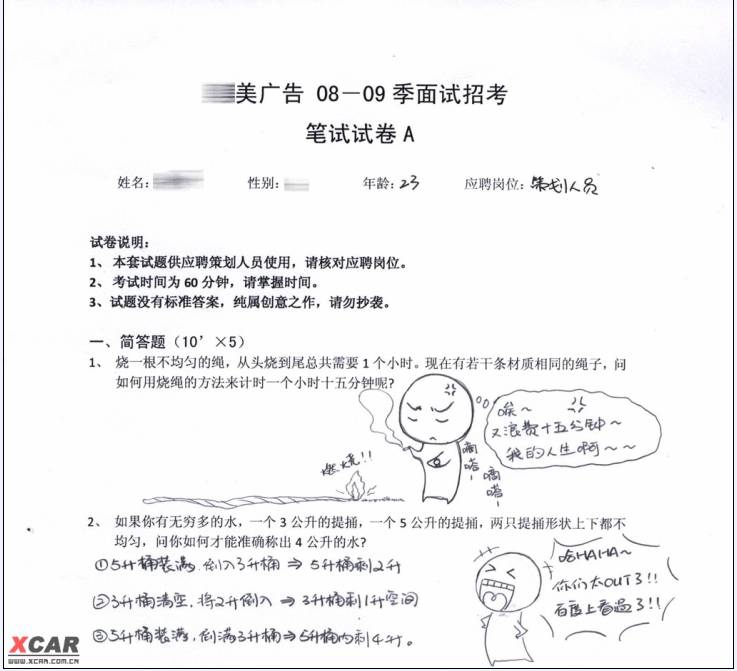 美广告 08－09 季面试招考
笔试试卷 A
姓名: 性别: 年龄: 23 应聘岗位: 策划人员
试卷说明：
1、 本套试题供应聘策划人员使用，请核对应聘岗位。
2、 考试时间为 60 分钟，请掌握时间。
3、试题没有标准答案，纯属创意之作，请勿抄袭。
一、简答题（10’×5）
1、 烧一根不均匀的绳，从头烧到尾总共需要 1 个小时。现在有若干条材质相同的绳子，问
如何用烧绳的方法来计时一个小时十五分钟呢?
唉～
又浪费十五分钟～
我的人生啊～～
燃烧!!
嘀嗒-
嘀嗒-
2、 如果你有无穷多的水，一个 3 公升的提捅，一个 5 公升的提捅，两只提捅形状上下都不
均匀，问你如何才能准确称出 4 公升的水?
①5升桶装满,倒入3升桶⇒5升桶剩2升
②3升桶清空,将2升倒入⇒3升桶剩1升空间
③5升桶装满,倒满3升桶⇒5升桶内剩4升。
哈HAHA～
你们太OUT了!!
百度上看过了!!
XCAR
WWW.XCAR.COM.CN